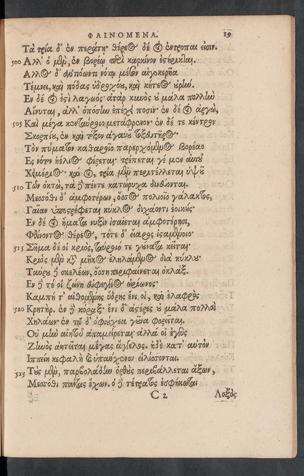 ΦΑΙΝΟΜΕΝΑ. 19
Τὰ τρία δ' ἐν περάτῃ· θέρεος δέ οἱ ἐν τροπαί εἰσιν.
500 Ἀλλ' ὁ μὲν ἐν βορέῳ περὶ καρκίνον ἐστήρικται.
Ἄλλος δ' ἀντιόωντι νότῳ μέσον αἰγοκερῆα
Τέμνει, καὶ πόδας ὑδροχόου, καὶ κήτεος οὐρήν.
Ἐν δέ οἱ ἐστὶ λαγωός· ἀτὰρ κυνὸς οὐ μάλα πολλὴν
Αἴνυται, ἀλλ' ὁπόσην ἐπέχει ποσίν· ἐν δέ οἱ ἀργώ,
505 Καὶ μέγα κενταύροιο μετάφρενον· ἐν δέ τε κέντρον
Σκορπίου, ἐν καὶ τόξον ἀγαυοῦ τοξευτῆρος.
Τὸν πύματον καθαροῖο παρερχόμενος βορέαο
Ἐς νότον ἠέλιος φέρεται· τρέπεταί γε μὲν αὐτοῦ
Χειμέριος· καί οἱ τρία μὲν περιτέλλεται ὑψοῦ
510 Τῶν ὀκτώ, τὰ δὲ πέντε κατώρυχα δινεύονται.
Μεσσόθι δ' ἀμφοτέρων, ὅσσος πολιοῖο γάλακτος,
Γαῖαν ὑποστρέφεται κύκλος διχόωντι ἐοικώς·
Ἐν δέ οἱ ἤματα νυξὶν ἰσαίεται ἀμφοτέρῃσι,
Φθίνοντος θέρεος, τότε δ' εἴαρος ἱσταμένοιο.
515 Σῆμα δέ οἱ κριός, ταύροιό τε γούνατα κεῖται·
Κριὸς μὲν κατὰ μῆκος ἐληλάμενος διὰ κύκλου·
Ταύρου δὲ σκελέων, ὅσση περιφαίνεται ὀκλάξ.
Ἐν δέ τέ οἱ ζώνη εὐφεγγέος ὠρίωνος·
Καμπή τ' αἰθομένης ὕδρης ἐνί οἱ, καὶ ἐλαφρὸς
520 Κρητήρ, ἐν δὲ κόραξ· ἐνὶ δ' ἀστέρες οὐ μάλα πολλοὶ
Χηλάων· ἐν τῷ δ' ὀφιούχεα γοῦνα φορεῖται.
Οὐ μὴν αἰητοῦ ἀπαμείρεται· ἀλλά οἱ ἐγγὺς
Ζηνὸς ἀητεῖται μέγας ἄγγελος. ἡ δὲ κατ' αὐτὸν
Ἱππείη κεφαλὴ καὶ ὑπαύχενον εἱλίσσονται.
525 Τοὺς μὲν παρβολάδην ὀρθοὺς περιβάλλεται ἄξων,
Μεσσόθι πάντας ἔχων. ὁ δὲ τέτρατος ἐσφήκωται
C 2 Λοξὸς